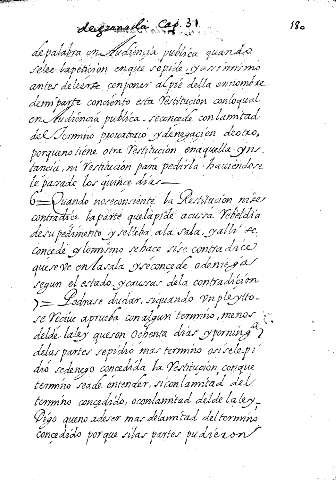 de granada Cap. 31 180
de palabra en Audiencia publica quando
se lee la peticion en que se pide, y assi mismo
antes de leerse con poner al pie della en nombre
de mi parte consiento esta restitucion con lo qual
en Audiencia publica. se concede con la mitad
del termino provatorio y denegacion de otro,
porque no tiene otra restitucion en aquella yns
tancia, ni restitucion para pedirla. haviendose
le pasado los quince dias
6 = Quando no se consiente la Restitucion ni se
contradice la parte que la pide acusa rebeldia
de su pedimento y se lleba a la sala, y alli se
concede y lo mismo se hace si se contradice
que se ve en la sala y se concede o deniega
segun el estado, y caussas de la contradicion
7 = Podrase dudar, si quando un pleyto
se recive a prueba con algun termino, menos
del de la ley que son ochenta dias y por ning.ª
de las partes se pidio mas termino o si se le pi
dio se denego concedida la restitucion, con que
termino se a de entender, si con la mitad del
termino concedido, o con la mitad del de la ley
Digo que no a de ser mas de la mitad del termino
concedido porque si las partes pudieron